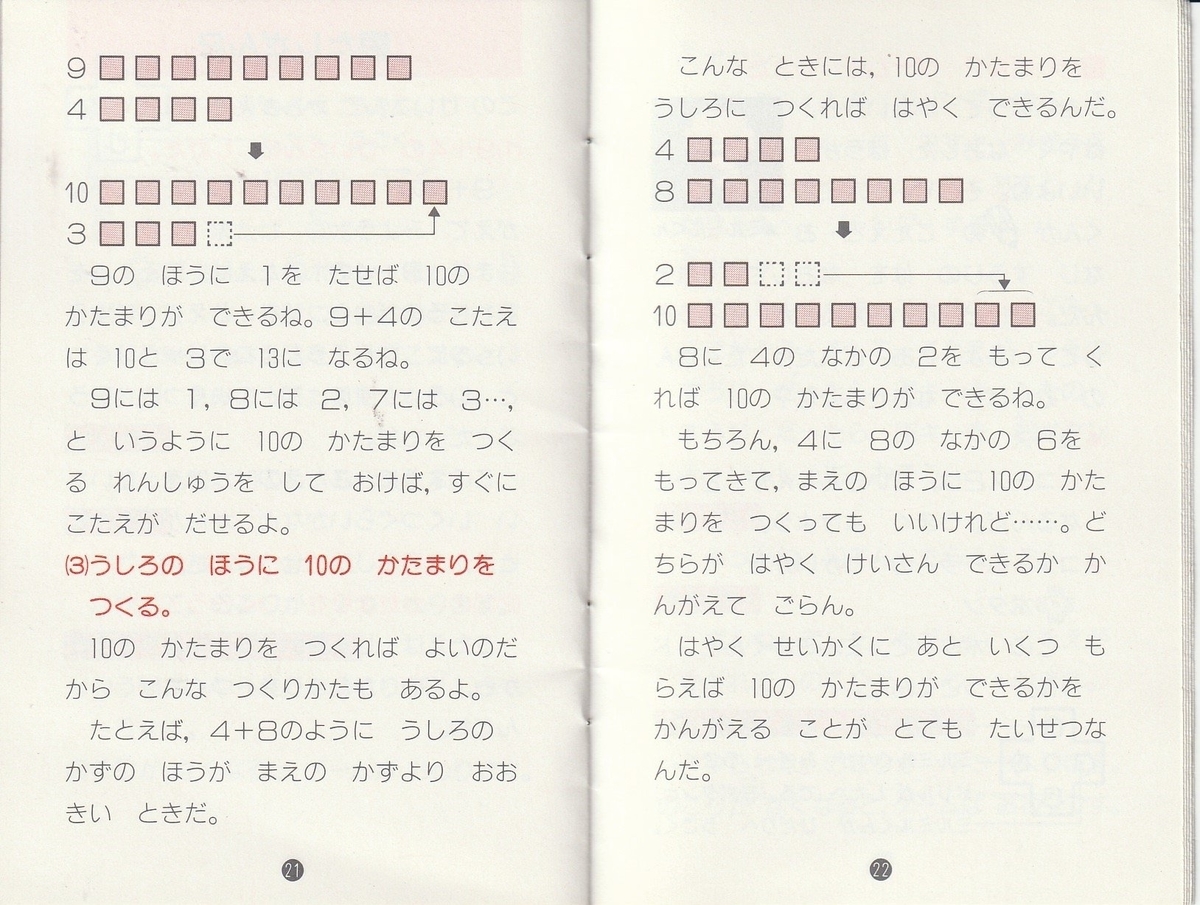 9
4
10
3
9の ほうに 1を たせば 10の
かたまりが できるね。9+4の こたえ
は 10と 3で 13に なるね。
9には 1, 8には 2, 7には 3…,
と いうように 10の かたまりを つく
る れんしゅうを して おけば, すぐに
こたえが だせるよ。
⑶うしろの ほうに 10の かたまりを
つくる。
10の かたまりを つくれば よいのだ
から こんな つくりかたも あるよ。
たとえば, 4+8のように うしろの
かずの ほうが まえの かずより おお
きい ときだ。
21
こんな ときには, 10の かたまりを
うしろに つくれば はやく できるんだ。
4
8
2
10
8に 4の なかの 2を もって く
れば 10の かたまりが できるね。
もちろん, 4に 8の なかの 6を
もってきて, まえの ほうに 10の かた
まりを つくっても いいけれど……。ど
ちらが はやく けいさん できるか か
んがえて ごらん。
はやく せいかくに あと いくつ も
らえば 10の かたまりが できるかを
かんがえる ことが とても たいせつな
んだ。
22